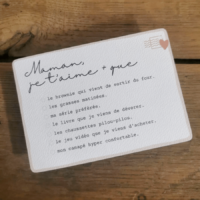 Maman,
je t'aime + que
le brownie qui vient de sortir du four.
les grasses matinées.
ma série préférée.
le livre que je viens de dévorer.
les chaussettes pilou-pilou.
le jeu vidéo que je viens d'acheter.
mon canapé hyper confortable.